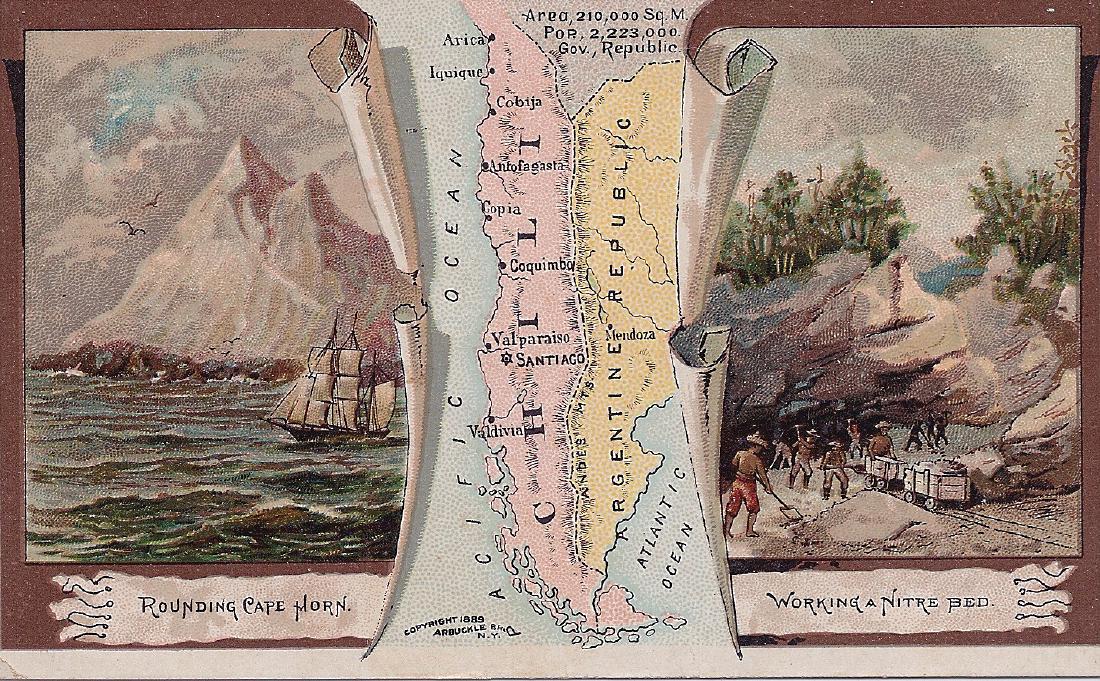 Area, 210,000 Sq. M.
Pop. 2,223,000.
Gov., Republic
Arica
Iquique
Cobija
Antofagasta
Copia
Coquimbo
Valparaiso
SANTIAGO
Valdivia
Mendoza
CHILI
ARGENTINE REPUBLIC
ANDES MTS.
PACIFIC OCEAN
ATLANTIC
OCEAN
COPYRIGHT 1889
ARBUCKLE BRO
N.Y.
ROUNDING CAPE HORN.
WORKING A NITRE BED.